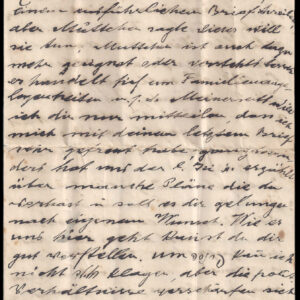 einen ausführlichen Brief schreiben
aber Muttchen sagte dieses will
sie tun, Muttchen ist auch dazu
mehr geeignet oder vorteilhafter
er handelt sich um Familienange
legenheiten u.s.w. Meinerseits will
ich dir nur mitteilen, dass ich
mich mit deinem letzten Brief
sehr gefreut habe,
dort hat uns der l. erzählt
über manche Pläne die du
vorhast u soll es dir gelungen
nach eigenem Wunsch. Wie es
uns hier geht kannst du dir
gut vorstellen. um kann ich
nicht klagen, aber die pol.
Verhältnisse verschärfen sich